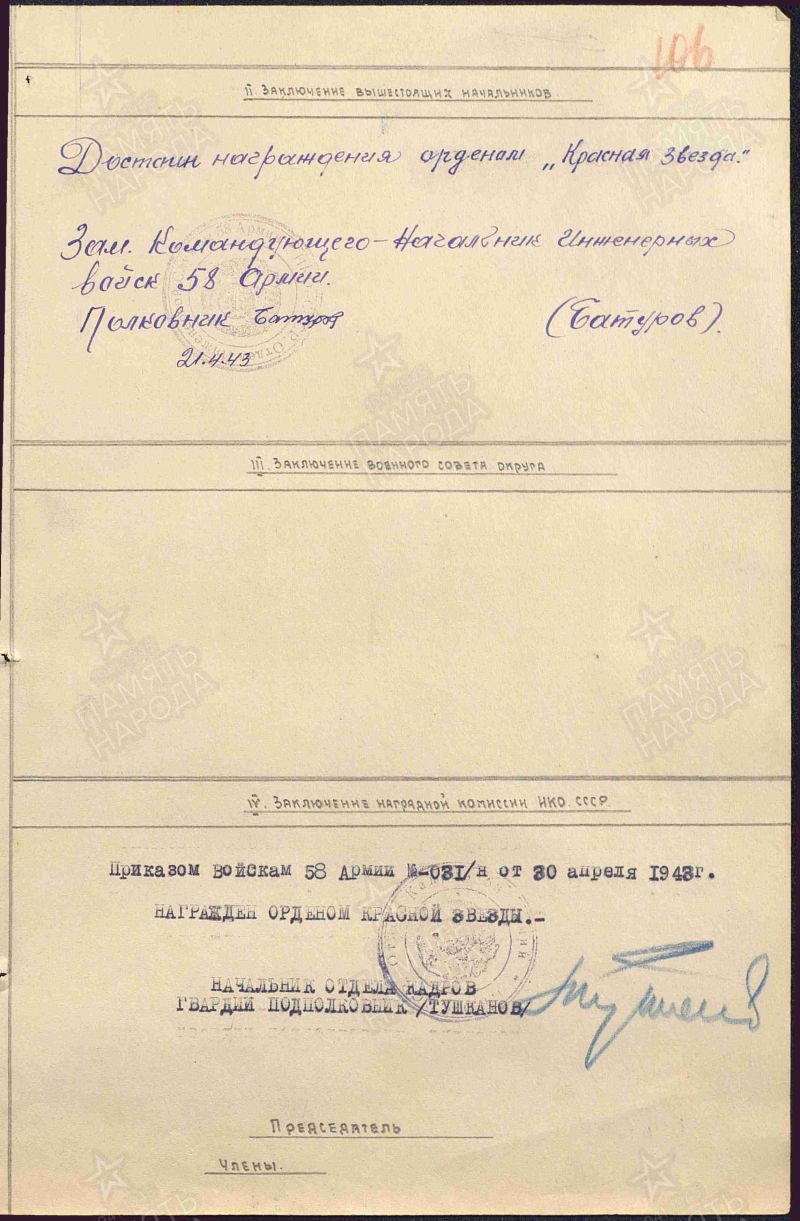 106
II. Заключение вышестоящих начальников
Достоин награждения орденом „Красная Звезда."
Зам. Командующего-Начальник Инженерных
войск 58 Армии.
Полковник Батуров (Батуров).
21.4.43
ПАМЯТЬ НАРОДА
III. Заключение военного совета округа
ПАМЯТЬ НАРОДА
ПАМЯТЬ НАРОДА
IV. Заключение наградной комиссии НКО. СССР.
Приказом войскам 58 Армии №-031/н от 30 апреля 1943г.
НАГРАЖДЕН ОРДЕНОМ КРАСНОЙ ЗВЕЗДЫ.-
НАЧАЛЬНИК ОТДЕЛА КАДРОВ
ГВАРДИИ ПОДПОЛКОВНИК /ТУШКАНОВ/
Председатель
Члены.